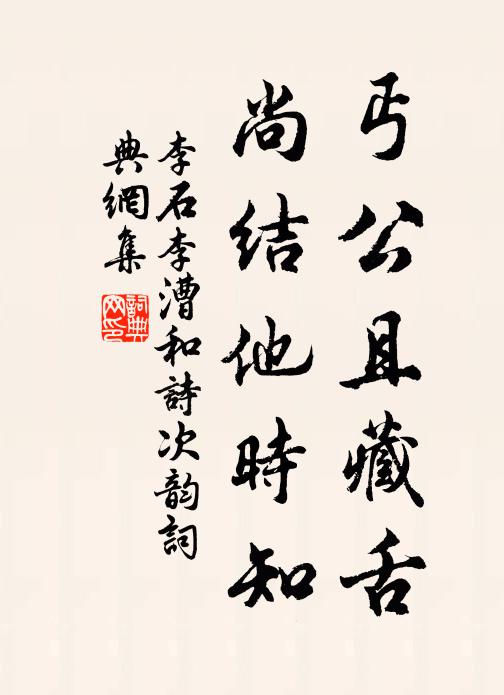 丐公且藏舌
尚结他時知
李石李漕和詩次韵詞
典網集
詞典网印